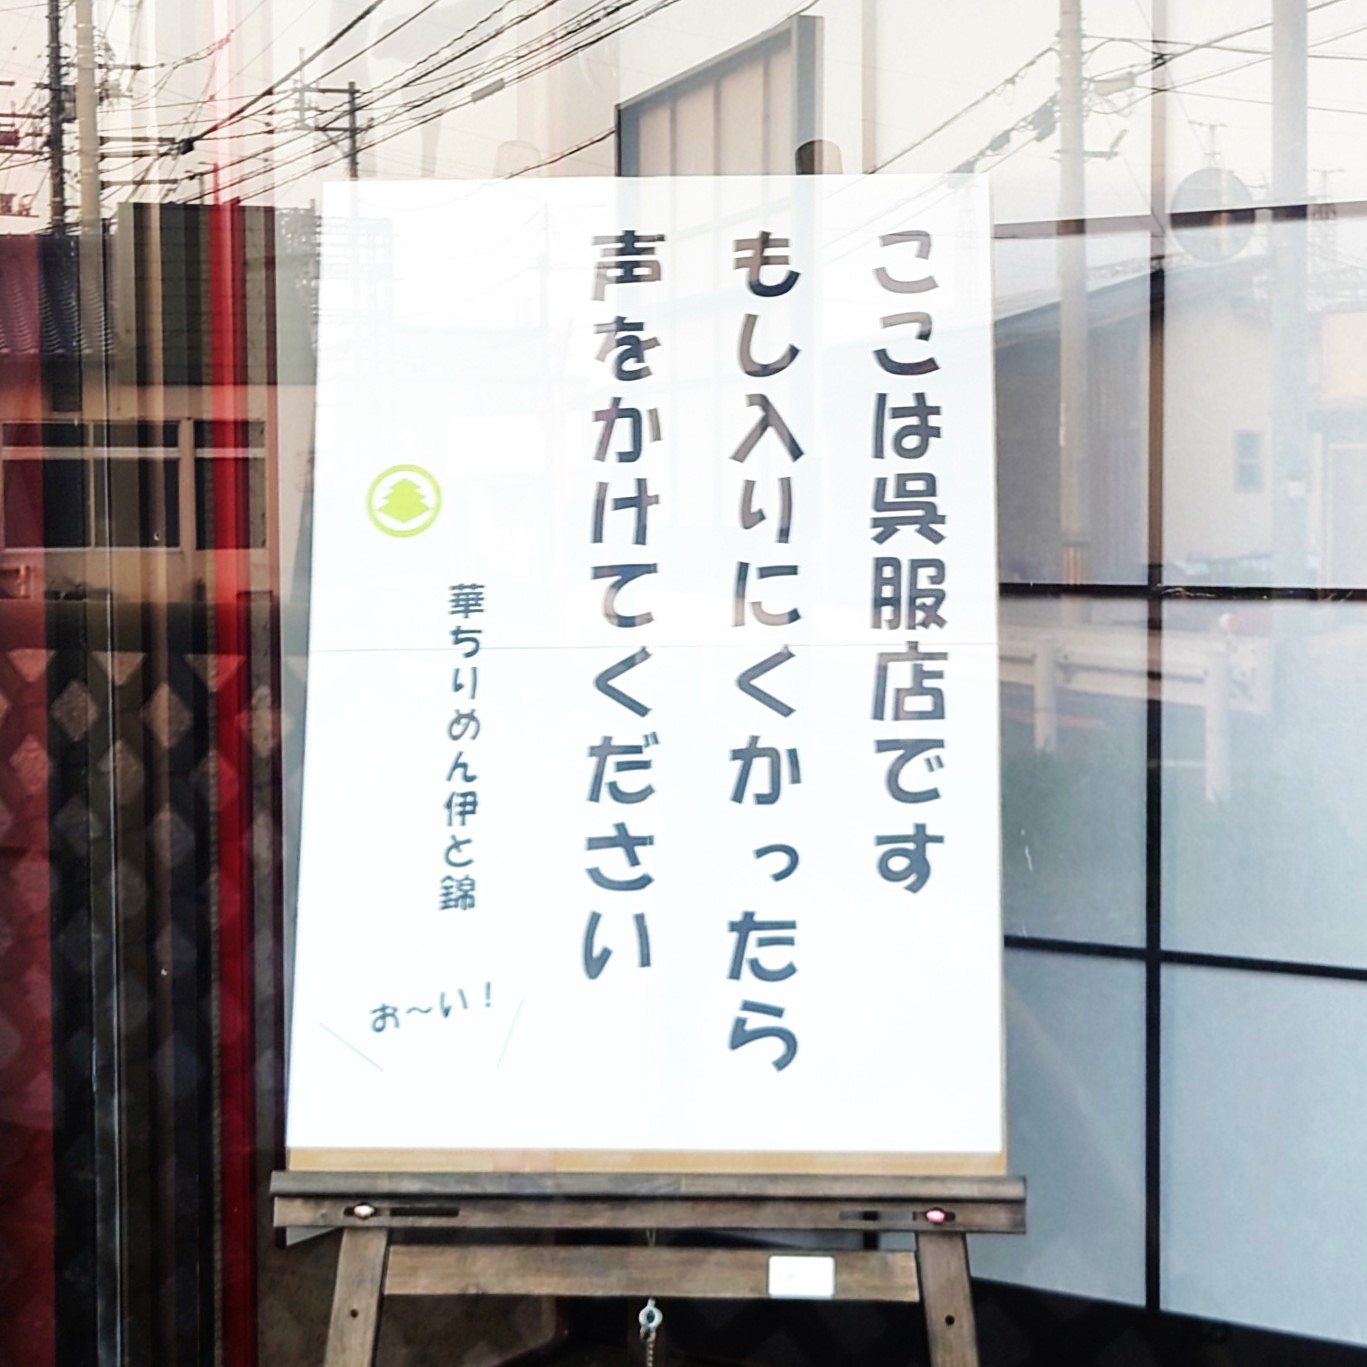 ここは呉服店です
もし入りにくかったら
声をかけてください
華ちりめん伊と錦
お～い！